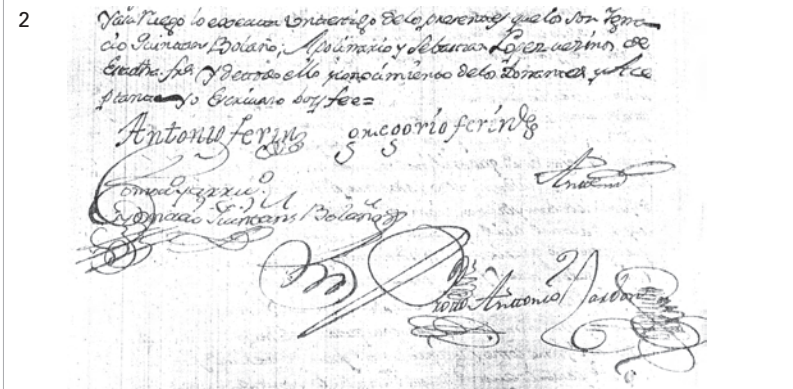 2
Yasu Ruego lo executa Untestigo delos presentes que lo son Igna
cio Quintans Bolaño, Apolinario y Sebastian Lopez vecinos de
Esta dha frª Y de todo ello y conocimiento delos Otorgantes y Ace
ptantes yo Escrivano doy fee=
Antonio ferin gregorio ferin
Como testigo
Ygnacio Quintans Bolaño
Antemi
Antonio Pardo